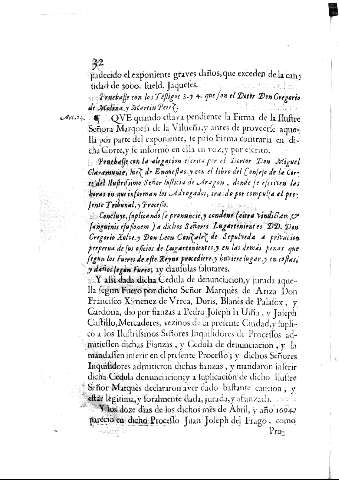 32
padecido el exponente graves daños, que exceden de la can-
tidad de 3000. sueld. Jaqueses.
Pruebasse con los Testigos 3. y 4. que son el Dotor Don Gregorio
de Molina y Martin Perez.
Art.24. ¶ QVE quando estava pendiente la Firma de la Ilustre
Señora Marquesa de la Vilueña, y antes de proveerse aque-
lla por parte del exponente, se puso Firma contraria en di-
cha Corte, y se informó en ella en voz, y por escrito.
Pruebasse con la alegacion escrita por el Doctor Don Miguel
Claramunte, Juez de Encuestas, y con el libro del Consejo de la Cor-
te del Ilustrissimo Señor Iusticia de Aragon, donde se escriven las
horas en que informan los Advogados, sea do por compulsa el pre-
sente Tribunal, y Processo.
Concluye, suplicando se pronuncie, y condene (citra vindictam, &
sanguinis efusionem) a dichos Señores Lugartenientes DD. Don
Gregorio Xulve, y Don Leon Gonzalez de Sepulveda a privacion
perpetua de sus oficios de Lugartenientes: y en las demás penas que
segun los Fueros de este Reyno procediere, y huviere lugar, y en costas,
y daños segun Fuero, y clausulas salutares.
Y assi dada dicha Cedula de denunciacion, y jurada aque-
lla segun Fuero por dicho Señor Marques de Ariza Don
Francisco Ximenez de Vrrea, Doris, Blanes de Palafox, y
Cardona, dió por fianzas a Pedro Joseph la Vissa, y Joseph
Castillo, Mercaderes, vezinos de la presente Ciudad, y supli-
có a los Ilustrissimos Señores Inquisidores de Processos ad-
mitiessen dichas Fianzas, y Cedula de denunciacion, y la
mandassen inserir en el presente Processo; y dichos Señores
Inquisidores admitieron dichas fianzas, y mandaron inserir
dicha Cedula denunciacion; y a suplicacion de dicho Ilustre
Señor Marques declararon aver dado bastante caucion, y
estár legitima, y foralmente dada, jurada, y afianzada.
Y a los doze dias de los dichos mes de Abril, y año 1694.
pareció en dicho Processo Juan Joseph del Frago, como
Pro-